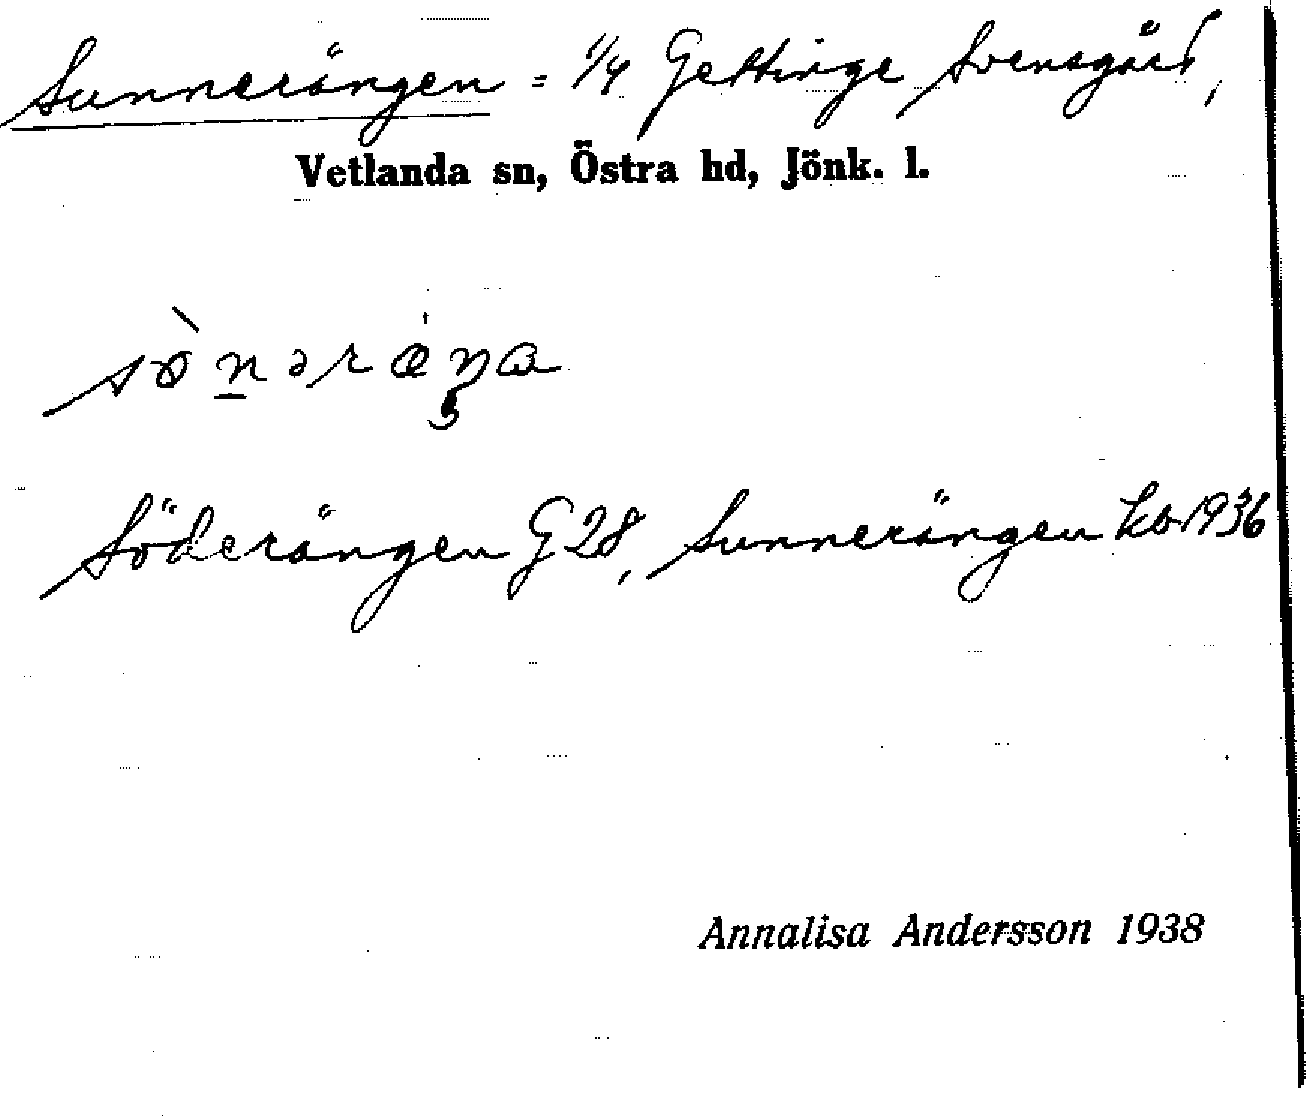 Sunnerängen = 1/4 Gettinge Svensgård,
Vetlanda sn, Östra hd, Jönk. l.
Söderängen G 28, Sunnerängen kb 1936
Annalisa Andersson 1938